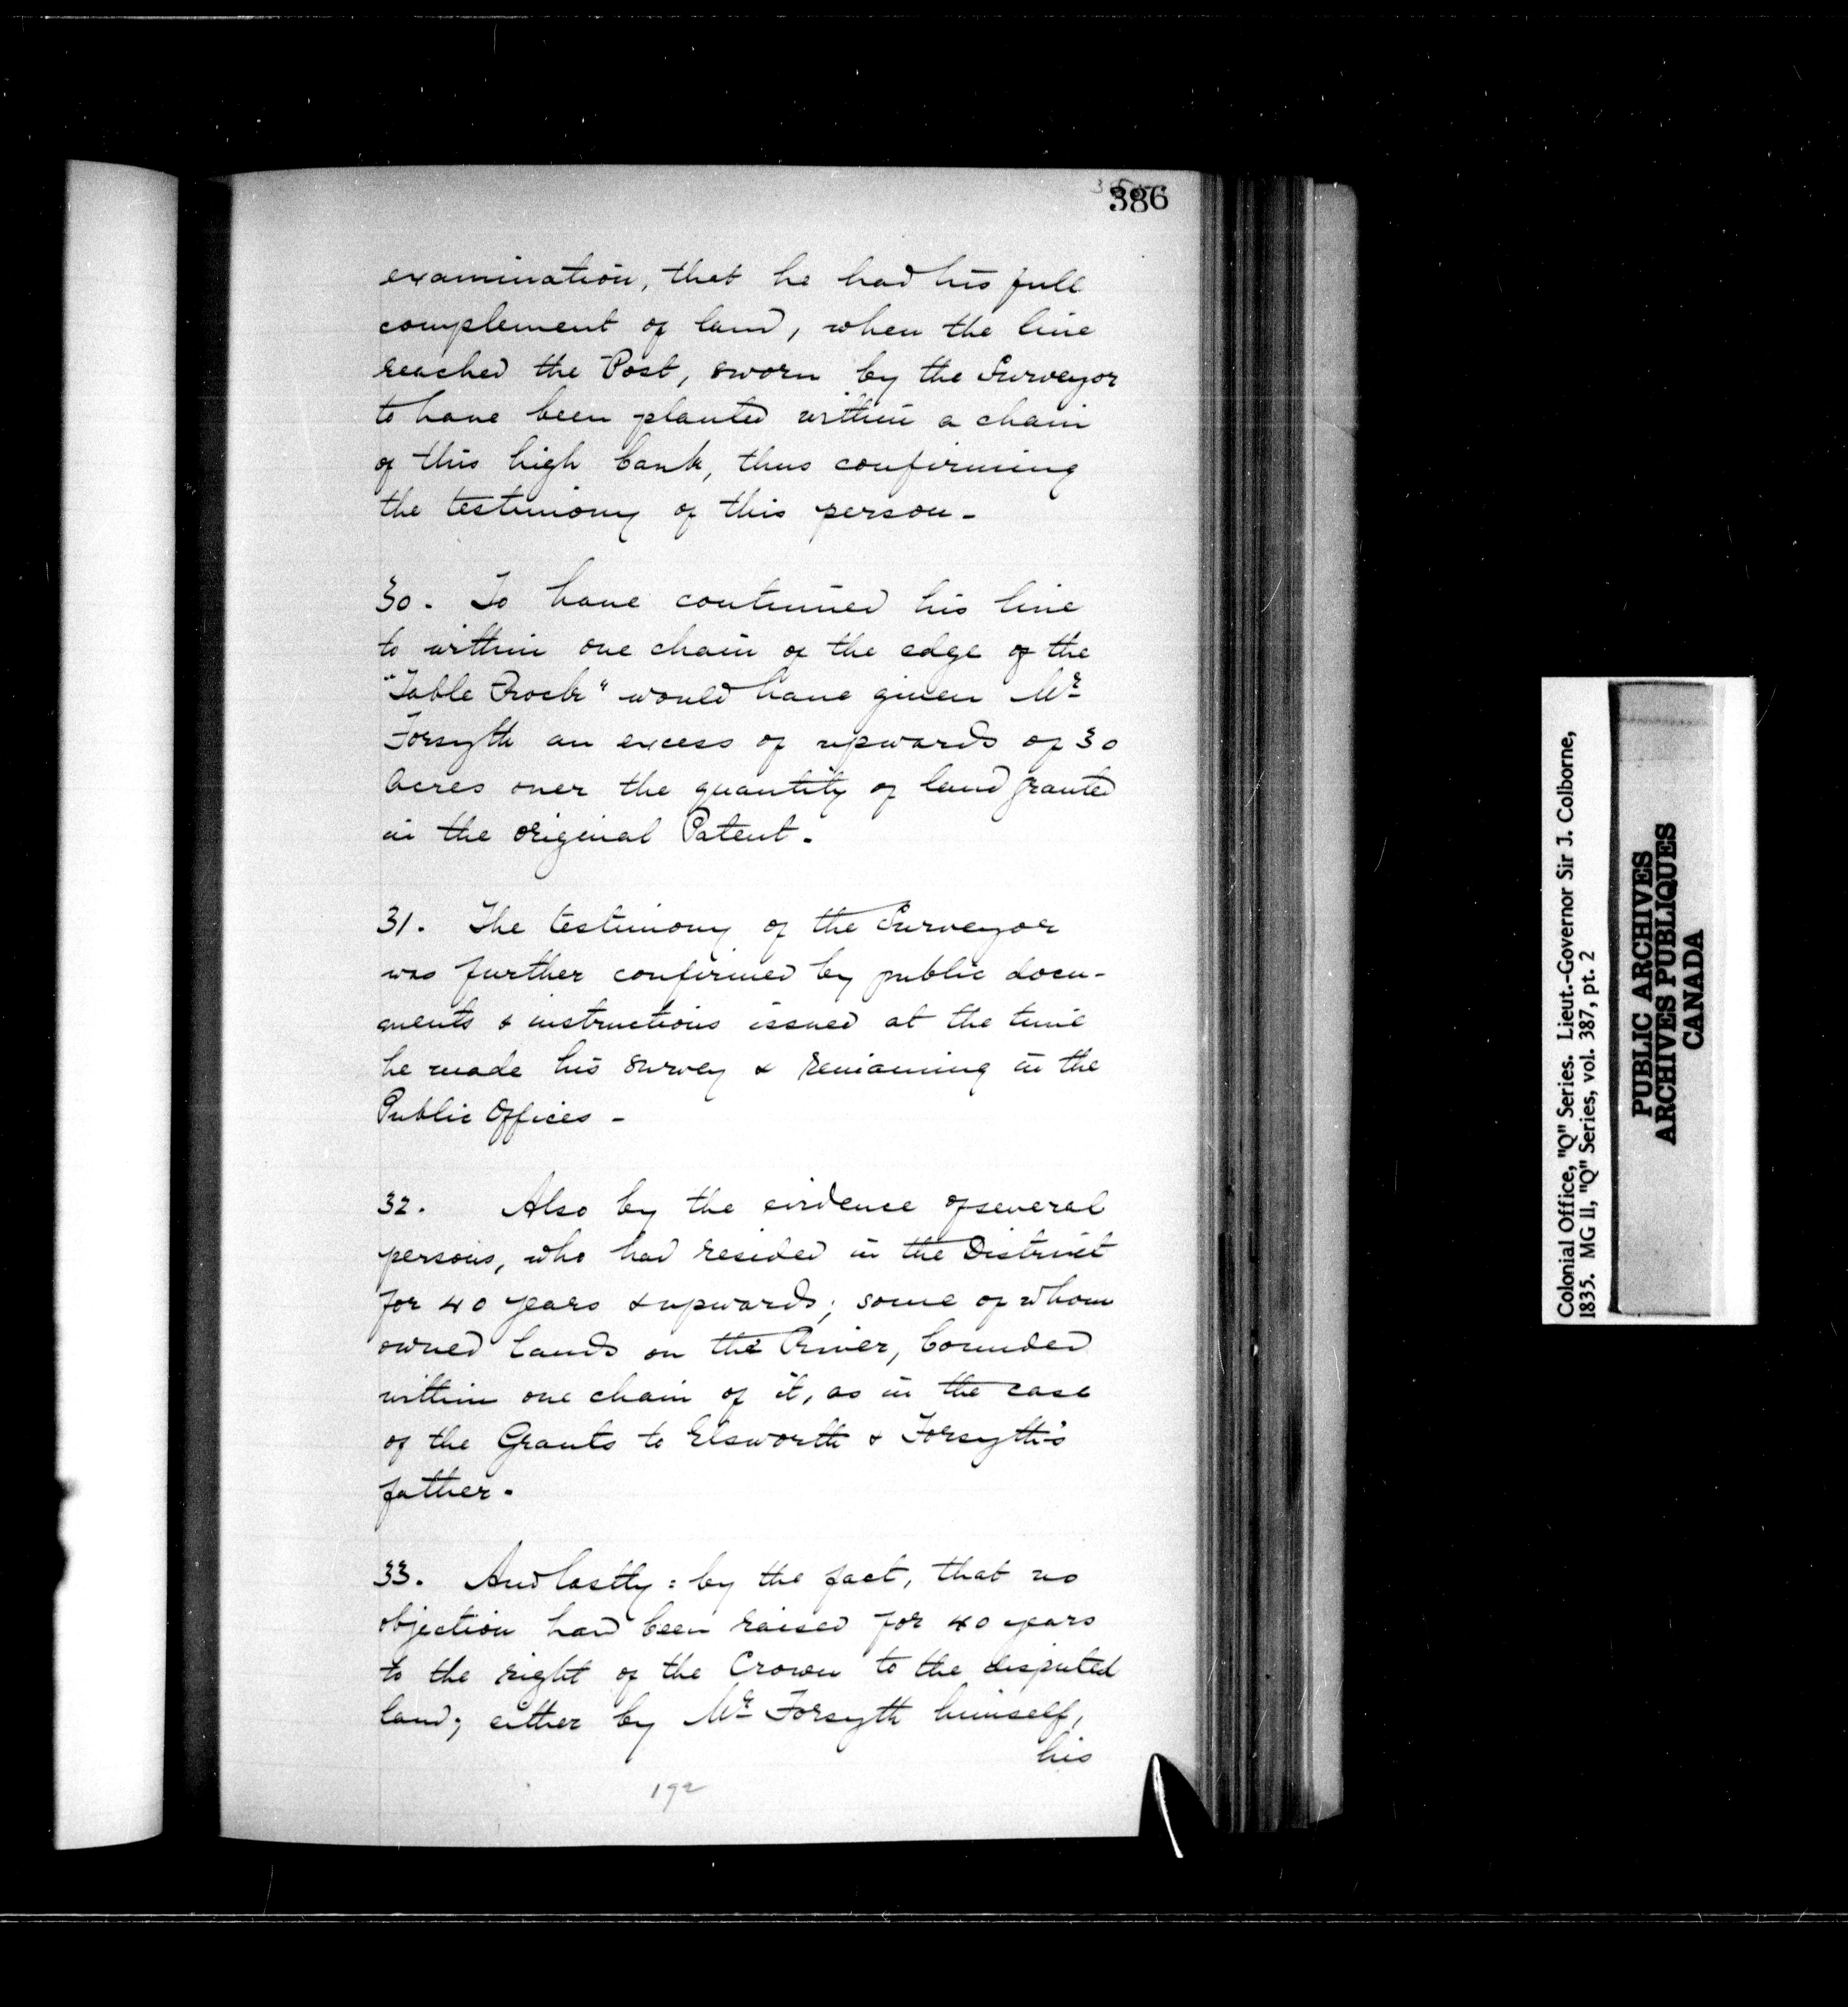 386
examination, that he had his full
complement of land, when the line
reached the Post, sworn by the Surveyor
to have been planted within a chain
of this high bank, thus confirming
the testimony of this person -
30. To have continued his line
to within one chain of the edge of the
"Table Rock" would have given Mr
Forsyth an excess of upwards of 30
Acres over the quantity of land granted
in the original Patent.
31. The testimony of the Surveyor
was further confirmed by public docu-
ments & instructions issued at the time
he made his survey & remaining in the
Public Offices -
32. Also by the evidence of several
persons, who had resided in the District
for 40 years & upwards; some of whom
owned lands on the River, bounded
within one chain of it, as in the case
of the Grants to Elsworth & Forsyth's
father.
33. And lastly: by the fact, that no
objection had been raised for 40 years
to the right of the Crown to the disputed
land; either by Mr Forsyth himself,
his
192
Colonial Office, "Q" Series. Lieut.-Governor Sir J. Colborne,
1835. MG 11, "Q" Series, vol. 387, pt. 2
PUBLIC ARCHIVES
ARCHIVES PUBLIQUES
CANADA